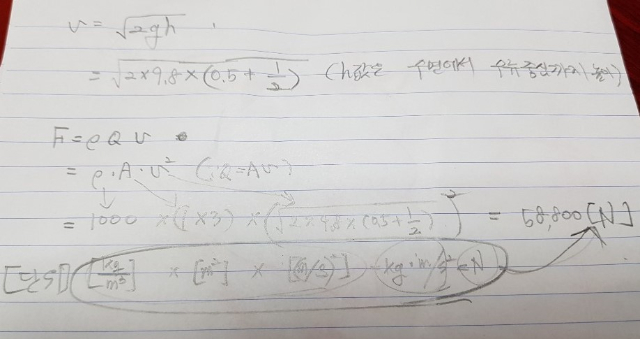 v = √2gh
= √2×9.8×(0.5+1/2) (h값은 수면에서 수문중심까지 높이)
F = ρQv
= ρ·A·v² (∵Q=Av)
= 1000 × (1×3) × (√2×9.8×(0.5+1/2))² = 58,800 [N]
[단위] [kg/m³] × [m²] × [(m/s)²] kg·m/s² = N